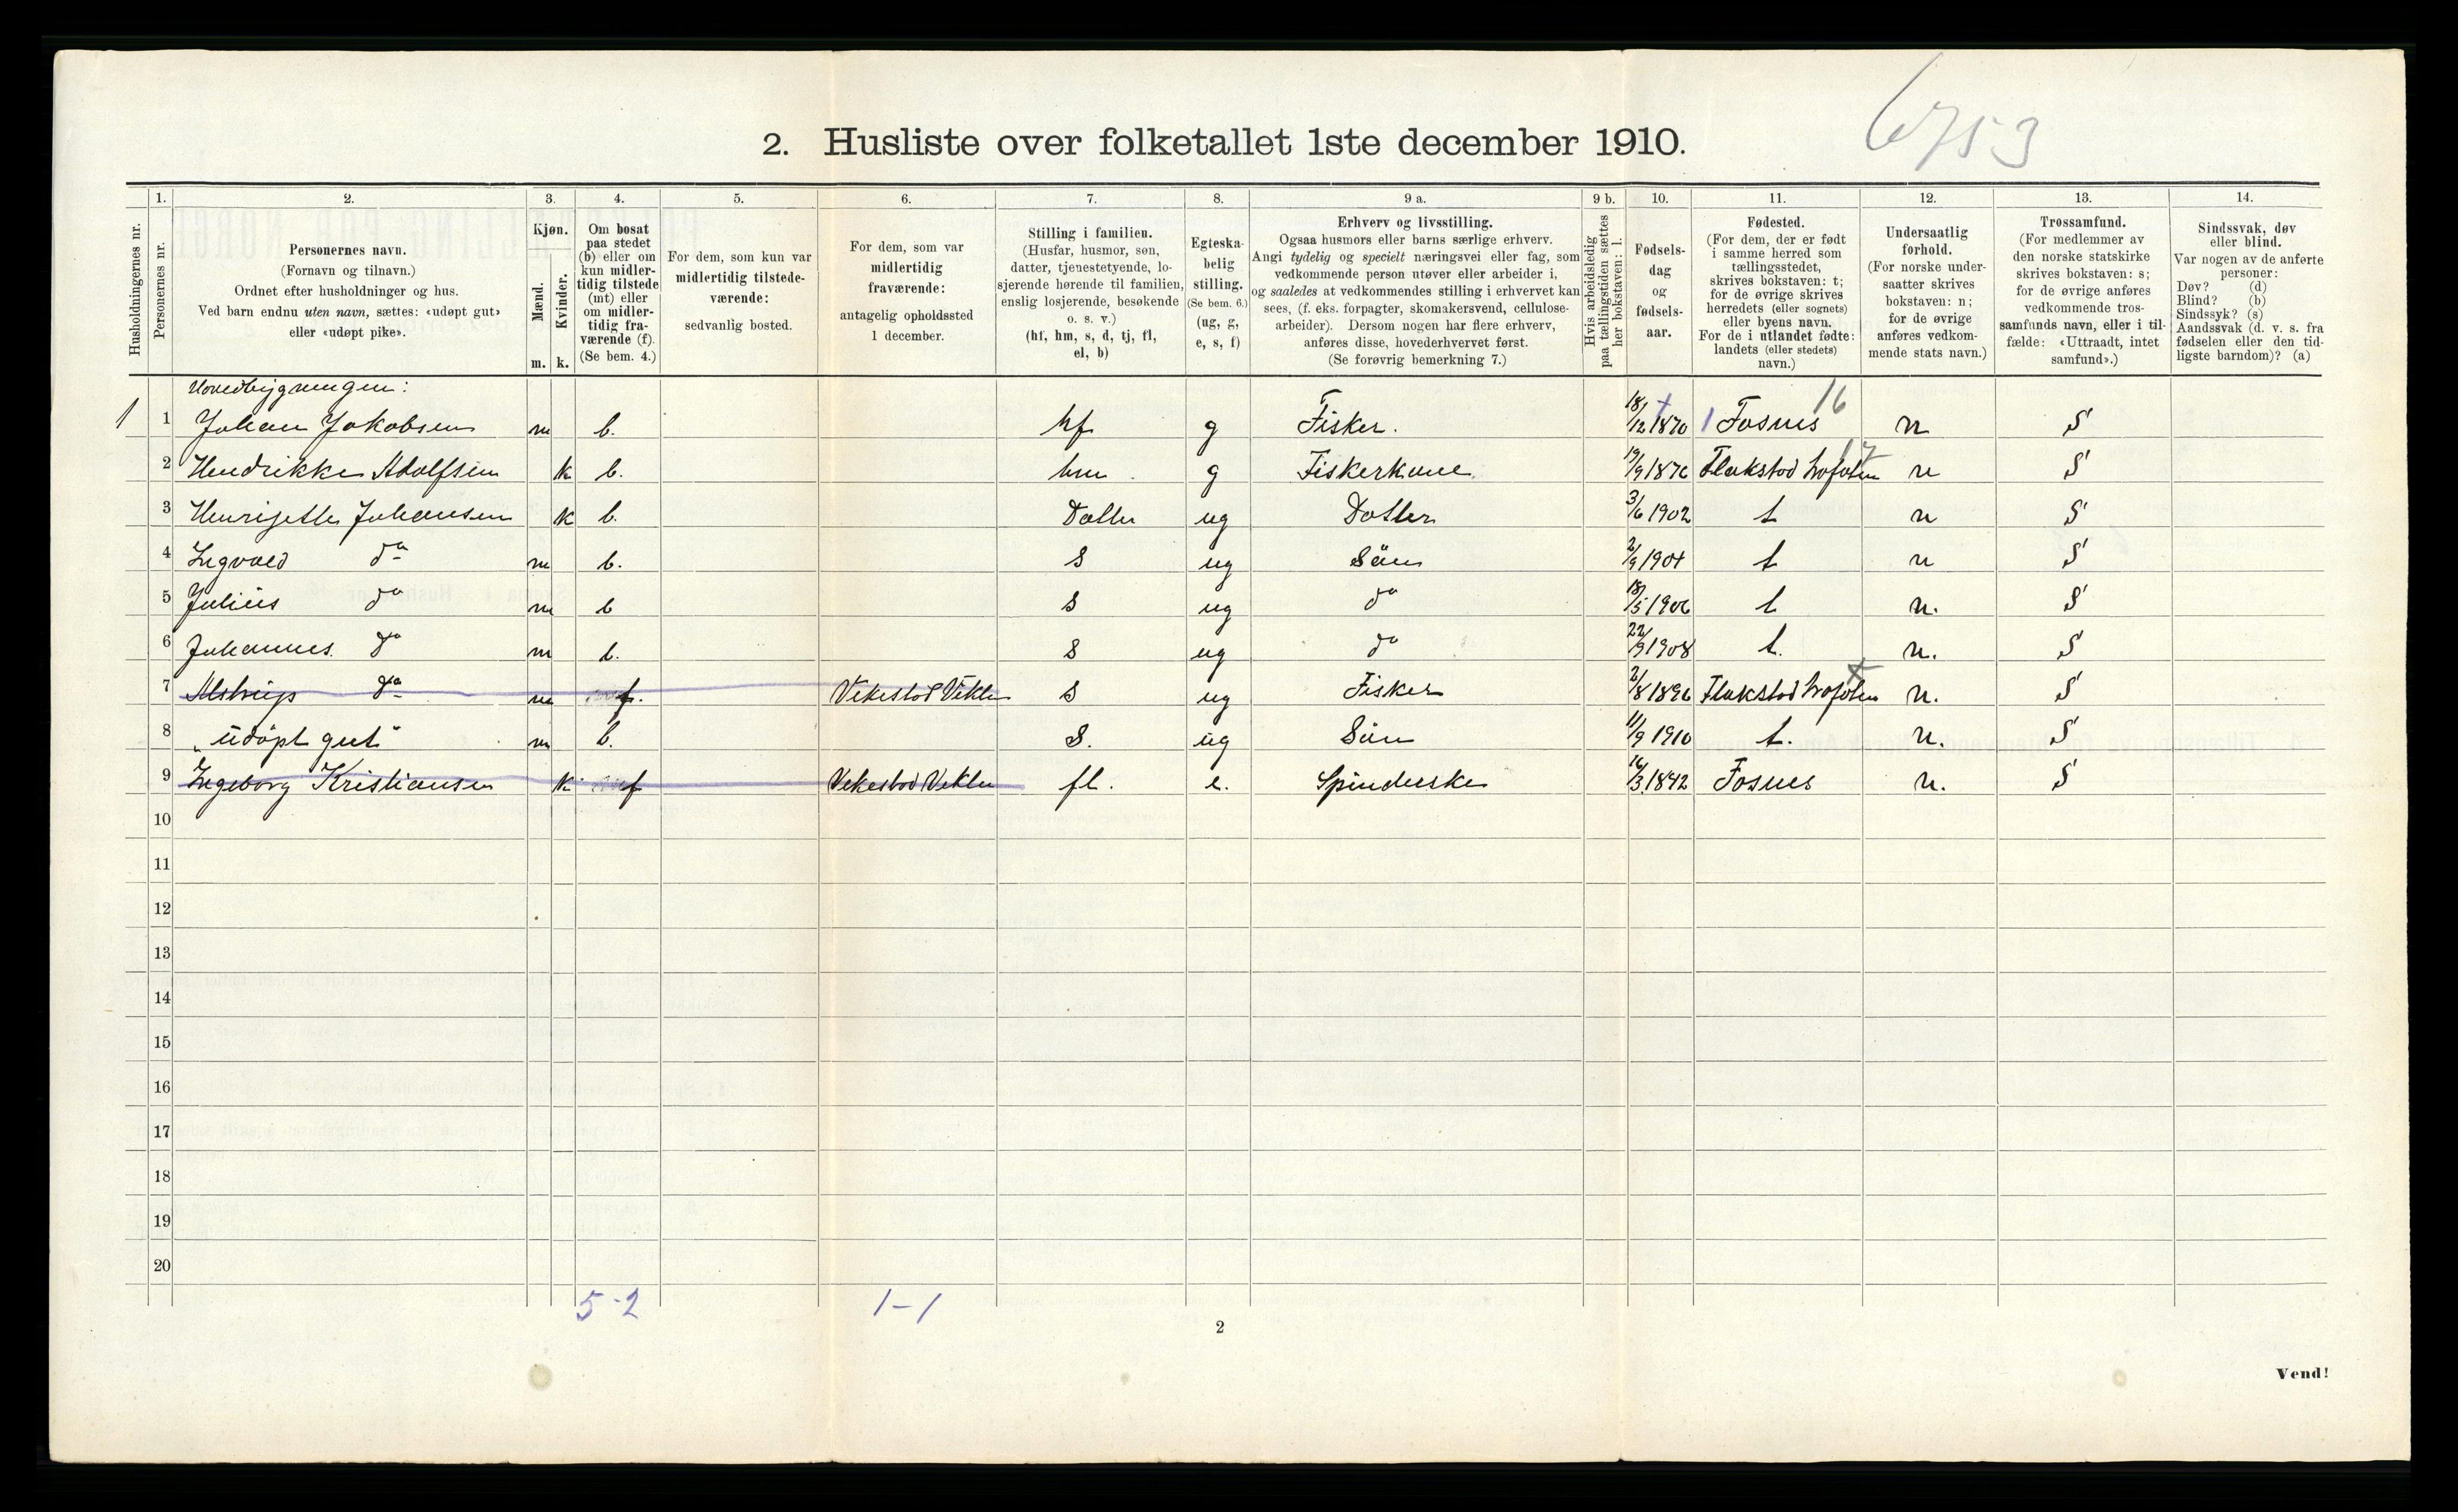 6753
2. Husliste over folketallet 1ste december 1910.
Husholdningernes nr.
1.
Personernes nr.
2.
Personernes navn.
(Fornavn og tilnavn.)
Ordnet efter husholdninger og hus.
Ved barn endnu uten navn, sættes: «udøpt gut»
eller «udøpt pike».
3.
Kjøn.
Mænd.
Kvinder.
m. k.
4.
Om bosat
paa stedet
(b) eller om
kun midler-
tidig tilstede
(mt) eller
om midler-
tidig fra-
værende (f).
(Se bem. 4.)
5.
For dem, som kun var
midlertidig tilstede-
værende:
sedvanlig bosted.
6.
For dem, som var
midlertidig
fraværende:
antagelig opholdssted
1 december.
7.
Stilling i familien.
(Husfar, husmor, søn,
datter, tjenestetyende, lo-
sjerende hørende til familien,
enslig losjerende, besøkende
o. s. v.)
(hf, hm, s, d, tj, fl,
el, b)
8.
Egteska-
belig
stilling.
(Se bem. 6.)
(ug, g,
e, s, f)
9 a.
Erhverv og livsstilling.
Ogsaa husmors eller barns særlige erhverv.
Angi tydelig og specielt næringsvei eller fag, som
vedkommende person utøver eller arbeider i,
og saaledes at vedkommendes stilling i erhvervet kan
sees, (f. eks. forpagter, skomakersvend, cellulose-
arbeider). Dersom nogen har flere erhverv,
anføres disse, hovederhvervet først.
(Se forøvrig bemerkning 7.)
9 b.
Hvis arbeidsledig
paa tællingstiden sættes
her bokstaven: l.
10.
Fødsels-
dag
og
fødsels-
aar.
11.
Fødested.
(For dem, der er født
i samme herred som
tællingsstedet,
skrives bokstaven: t;
for de øvrige skrives
herredets (eller sognets)
eller byens navn.
For de i utlandet fødte:
landets (eller stedets)
navn.)
12.
Undersaatlig
forhold.
(For norske under-
saatter skrives
bokstaven: n;
for de øvrige
anføres vedkom-
mende stats navn.)
13.
Trossamfund.
(For medlemmer av
den norske statskirke
skrives bokstaven: s;
for de øvrige anføres
vedkommende tros-
samfunds navn, eller i til-
fælde: «Uttraadt, intet
samfund».)
14.
Sindssvak, døv
eller blind.
Var nogen av de anførte
personer:
Døv? (d)
Blind? (b)
Sindssyk? (s)
Aandssvak (d. v. s. fra
fødselen eller den tid-
ligste barndom)? (a)
Hovedbygningen:
1 1 Johan Jakobsen m b. hf g Fisker. 18/12 1870 1 Fosnes 16 n S
2 Hendrikke Adolfsen k b. hm g Fiskerkone 19/9 1876 Flakstad Lofoten 17 n S
3 Henrijette Johansen k b. Datter ug Datter 3/6 1902 t n S
4 Ingvald do m b. s ug Sön 2/9 1904 t n S
5 Julius do m b s ug do 18/5 1906 t n. S
6 Johannes do m b. s ug do 22/9 1908 t. n. S
7 do m f. Vikestad Vikten s ug Fisker 2/8 1896 Flakstad Lofoten n. S
8 „udöpt gut" m b. s. ug Sön 11/9 1910 t. n. S
9 Ingeborg Kristiansen k f Vikestad Vikten fl. e. Spinderske 16/3 1842 Fosnes n. S
10
11
12
13
14
15
16
17
18
19
20
5-2 1-1
2
Vend!